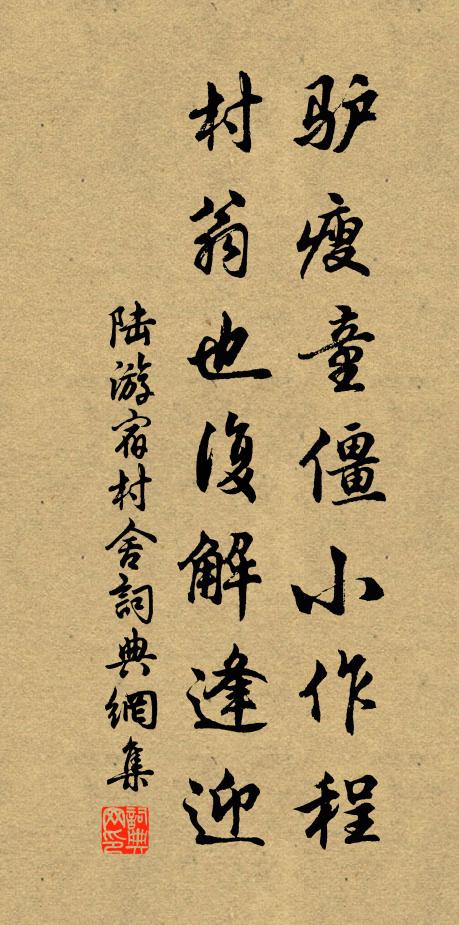 驴瘦童僵小作程
村翁也復解逢迎
陆游宿村舍詞典網集
詞典
网印